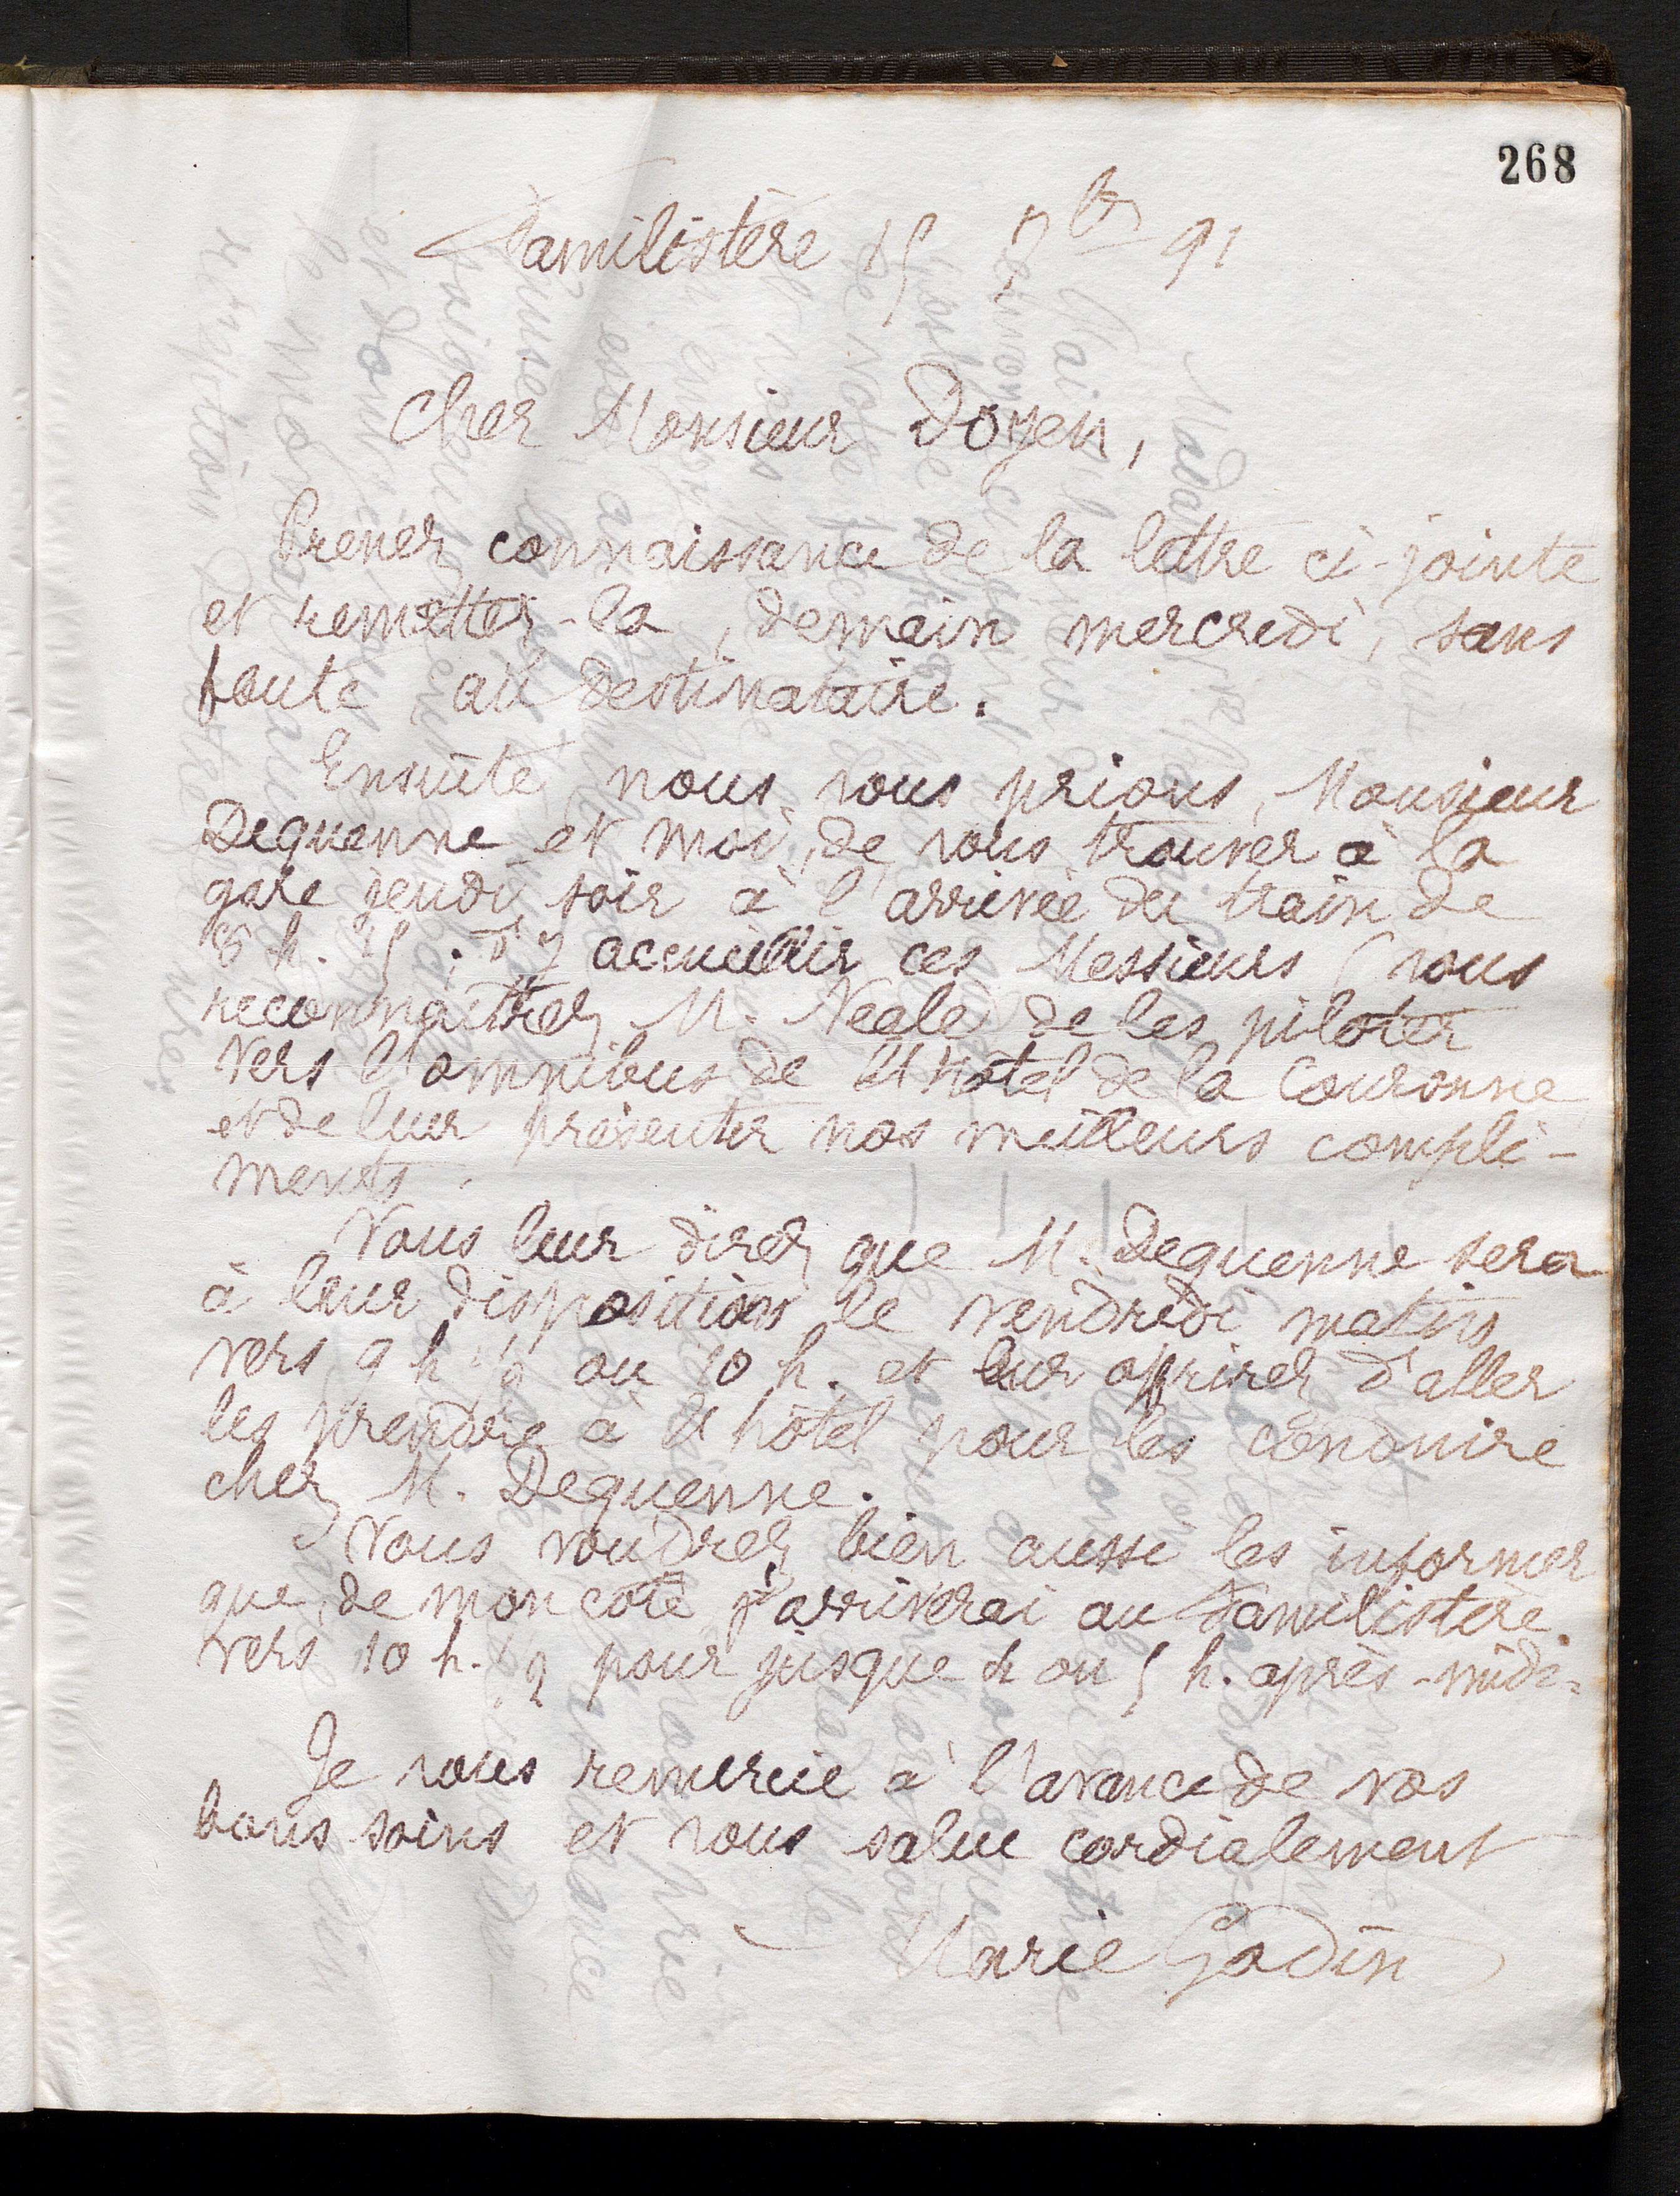 268
Familistère 15 7bre 91
Cher Monsieur Doyen,
Prenez connaissance de la lettre ci-jointe
et remettez-la, demain mercredi, sans
faute au destinataire.
Ensuite, nous vous prions, Monsieur
Dequenne et moi, de vous trouver à la
gare jeudi soir à l'arrivée du train de
h. ; d'y accueillir ces Messieurs (vous
reconnaîtrez M. Neale de les piloter
vers l'omnibus de l'hôtel de la Couronne
et de leur présenter nos meilleurs compli-
ments.
Vous leur direz que M. Dequenne sera
à leur disposition le vendredi matin
vers 9 h 1/2 ou 10 h. et leur offrirez d'aller
les prendre à l'hôtel pour les conduire
chez M. Dequenne.
Vous voudrez bien aussi les informer
que, de mon côté j'arriverai au Familistère
vers 10 h. 1/2 pour jusque 4 ou 5 h. après-midi.
Je vous remercie à l'avance de vos
bons soins et vous salue cordialement
Marie Godin